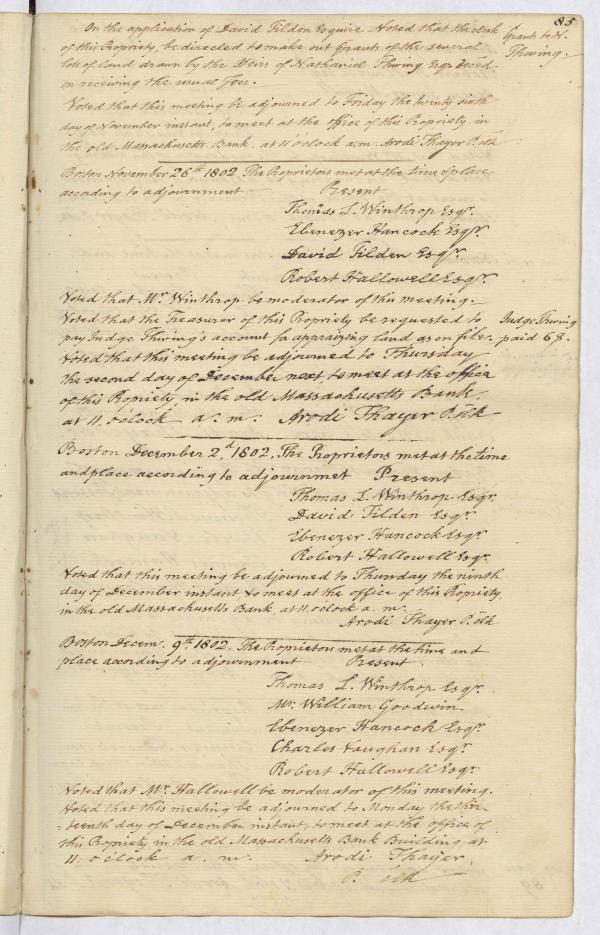 85
On the application of David Tilden Esquire Noted that the clerk
of this Propriety, be directed to make out Grants of the several
lots of land drawn by the Heirs of Nathaniel Thwing Esqr deced.
on receiving the usual fees.
Grants to N.
Thwing.
Voted that this meeting be adjourned to Friday the twenty sixth
day of November instant, to meet at the office of this Propriety, in
the old Massachusetts Bank at 11 oclock a.m. Arodi Thayer P. clk
Boston November 26th 1802. The Proprietors met at the time & place
according to adjournment Present
Thomas L. Winthrop Esqr.
Ebenezer Hancock Esqr.
David Tilden Esqr.
Robert Hallowell Esqr.
Voted that Mr. Winthrop be moderator of this meeting.
Voted that the Treasurer of this Propriety be requested to
pay Judge Thwing's account for appraizing land as on file.
Judge Thwing
paid 6$.
Voted that this meeting be adjourned to Thursday
the second day of December next, to meet at the office
of this Propriety, in the old Massachusetts Bank
at 11. oclock a. m. Arodi Thayer P. clk
Boston December 2d, 1802. The Proprietors met at the time
and place according to adjournmet Present
Thomas L. Winthrop Esqr.
David Tilden Esqr.
Ebenezer Hancock Esqr.
Robert Hallowell Esqr.
Voted that this meeting be adjourned to Thursday the ninth
day of December instant to meet at the office of this Propriety,
in the old Massachusetts Bank at 11 oclock a. m.
Arodi Thayer P. clk
Boston Decem. 9th. 1802. The Proprietors met at the time and
place according to adjournment Present.
Thomas L. Winthrop Esqr.
Mr. William Goodwin
Ebenezer Hancock Esqr.
Charles Vaughan Esqr.
Robert Hallowell Esqr.
Voted that Mr. Hallowell be moderator of this meeting.
Voted that this meeting be adjourned to Monday the thir-
-teenth day of December instant, to meet at the office of
this Propriety in the old Massachusetts Bank Building, at
11. oclock a. m. Arodi Thayer
P. clk